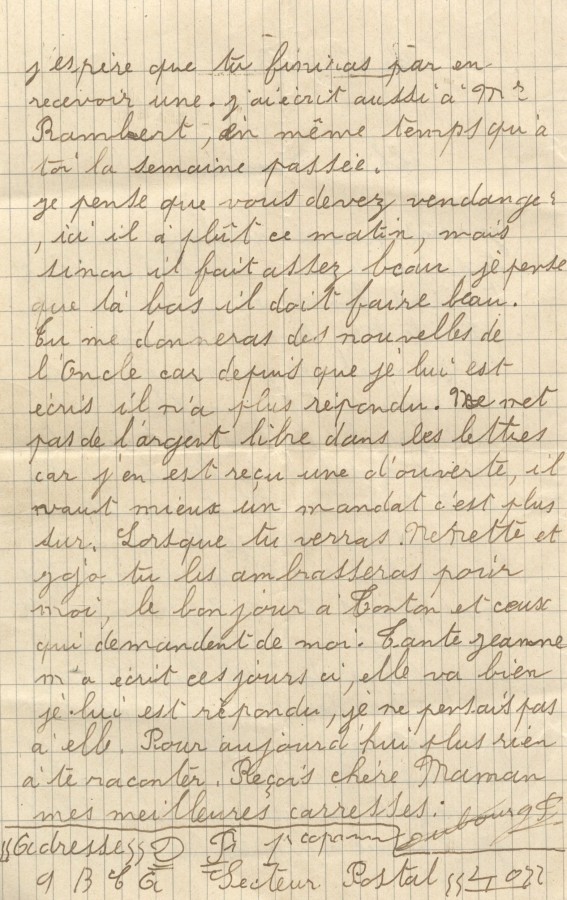 j'espère que tu finiras par en
recevoir une. j'ai écrit aussi à Mr
Rambert, en même temps qu'à
toi la semaine passée.
je pense que vous devez vendanger
, ici il à plût ce matin, mais
sinon il fait assez beau, je pense
que là bas il doit faire beau.
Tu me donneras des nouvelles de
l'Oncle car depuis que je lui est
écris il n'a plus répondu. Ne met
pas de l'argent libre dans les lettres
car j'en est reçu une d'ouverte, il
vaut mieux un mandat c'est plus
sur. Lorsque tu verras Nenette et
jojo tu les ambrasseras pour
moi, le bonjour à Tonton et ceux
qui demandent de moi. Tante jeanne
m'a écrit ces jours ci, elle va bien
je lui est répondu, je ne pensais pas
à elle. Pour aujourd'hui plus rien
à te raconter. Reçois chère Maman
mes meilleures carresses.
Adresse
Secteur Postal